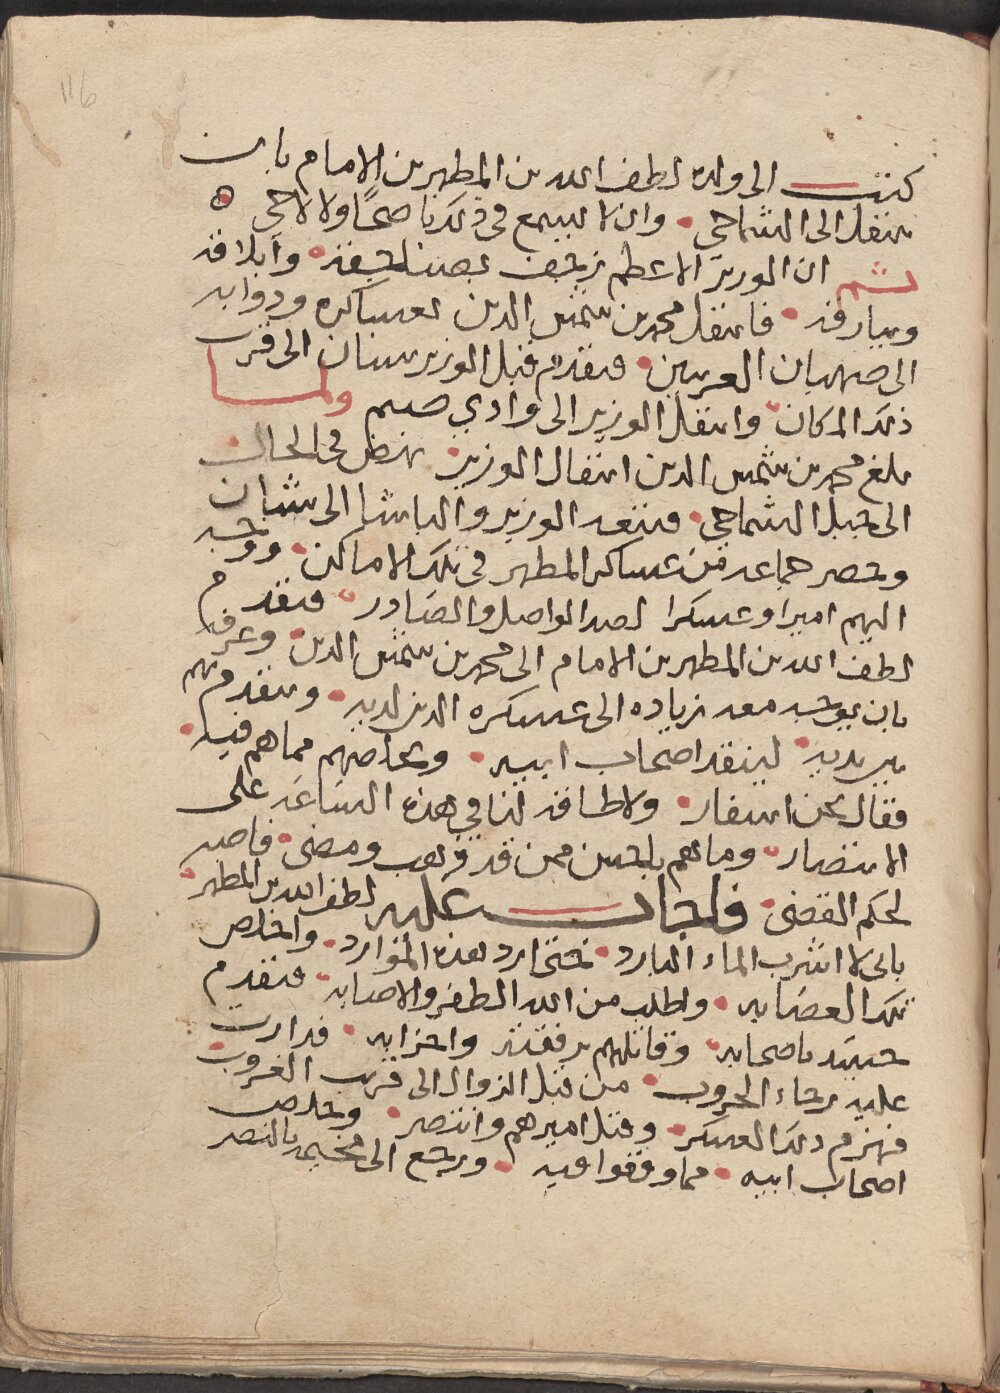 116
كتب الى ولده لطف الله بن المطهر بن الامام بان
ينتقل الى الشماحي وان لا يسمع في ذلك ناصحًا ولا لاحي
ثم ان الوزير الاعظم زحف وابلاقه
وبيارقه فانتقل محمد بن شمس الدين بعساكره ودوابه
الى صهبان العربين فتقدم قبل الوزير سنان الى قرب
ذلك المكان وانتقل الوزير الى وادي صيم ولما
بلغ محمد بن شمس الدين انتقال الوزير نهض في الحال
الى جبل الشماحي فبتعد الوزير والباشا الى شبان
وحصر جماعه من عساكر المطهر في تلك الاماكن ووجه
اليهم اميرا وعسكرا لصد الواصل والصادر فتقدم
لطف الله بن المطهر بن الامام الى محمد بن شمس الدين وعرفه
بان يوجه معه زياده الى عسكره الذين لديه ويتقدم بهم
بين يديه لينقذ اصحاب ابيه ويخلصهم مما هم فيه
فقال نحن اسفار ولا طاقه لنا في هذه الساعه على
الانتصار وما هم باحسن ممن قد ومضى فاصبر
لحكم القضى فاجاب عليه لطف الله بن المطهر
باني لا اشرب الماء البارد تختارد لهذه الموارد واخلص
تلك العصابه واطلب من الله الظفر والاصابه فتقدم
حينئذ باصحابه وقاتلهم برفقته واحزابه فدارت
عليه رحاء الحروب من قبل الزوال الى قرب الغروب
فهزم ذلك العسكر وقتل اميرهم وانتصر وخلص
اصحاب ابيه مما وقفوا فيه ورجع الى مخيمه بالنصر